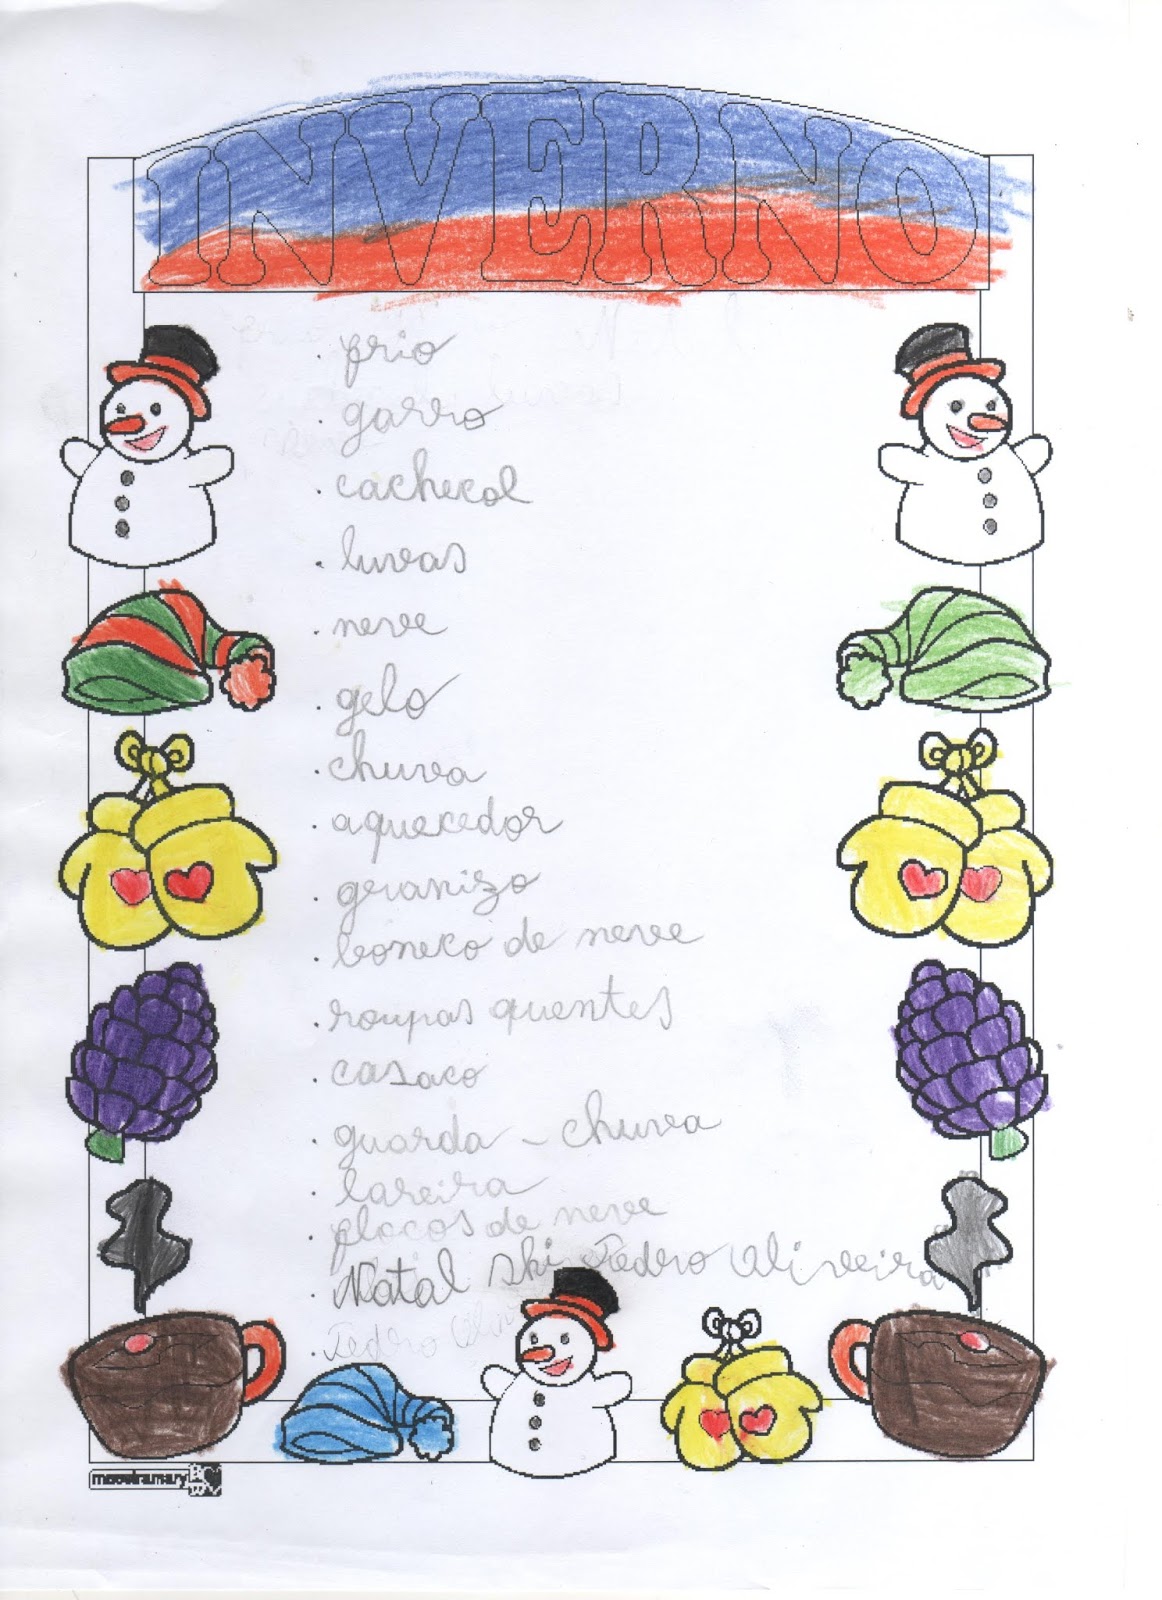 INVERNO
. frio
. gorro
. cachecol
. luvas
. neve
. gelo
. chuva
. aquecedor
. granizo
. boneco de neve
. roupas quentes
. casaco
. guarda - chuva
. lareira
. flocos de neve
. Natal ski Pedro Oliveira
. Pedro
maestramary